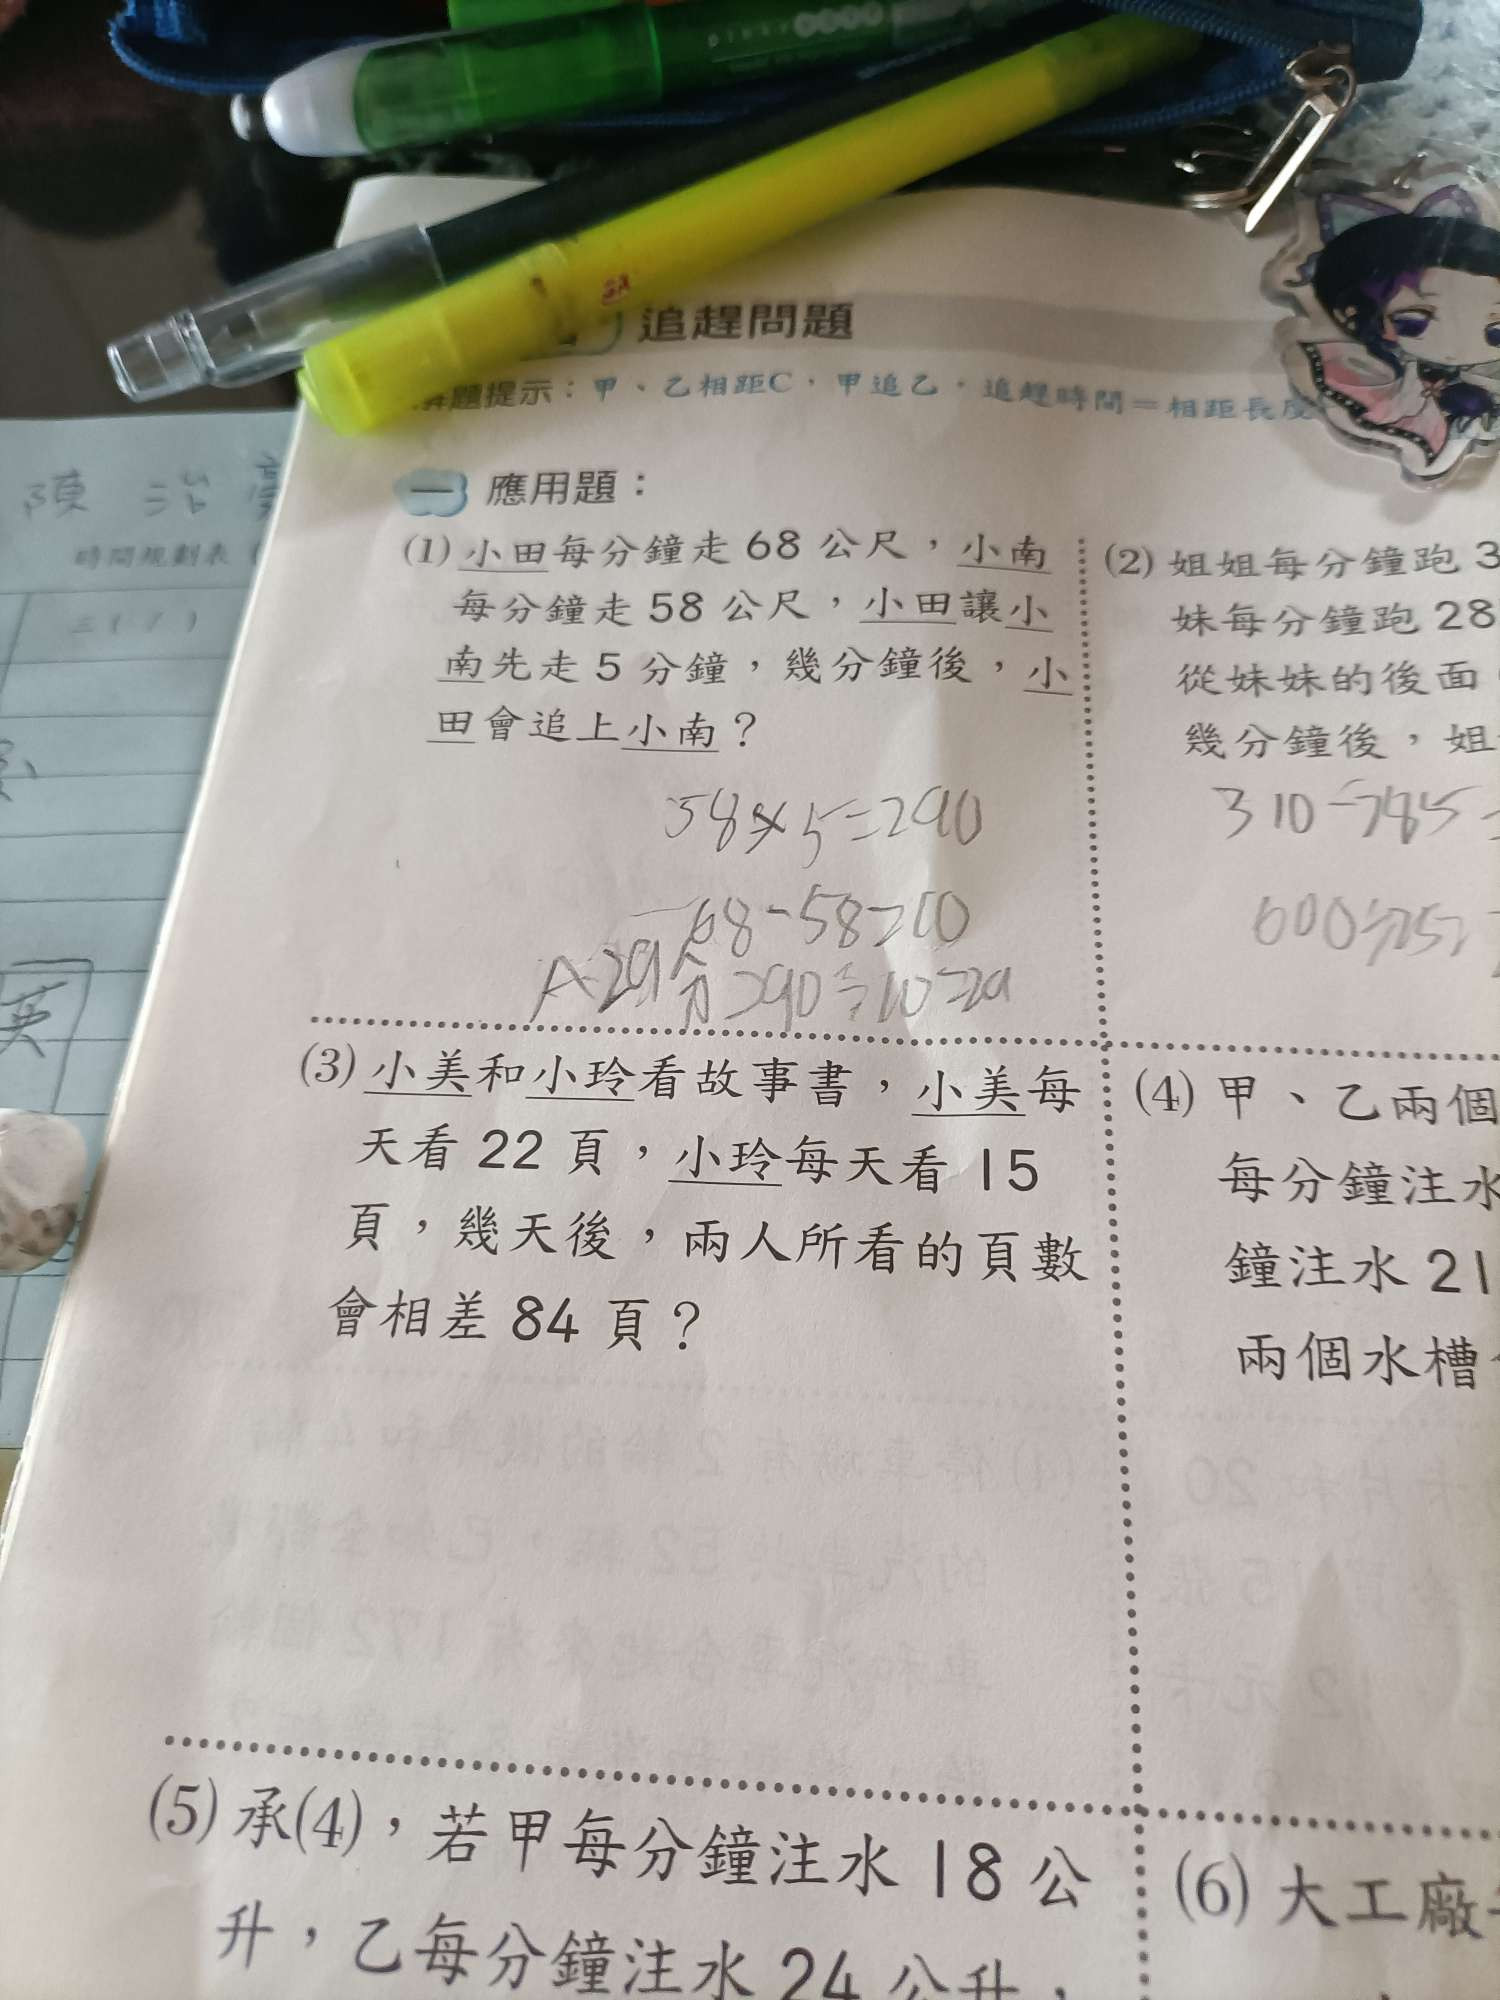 追趕問題
解題提示：甲、乙相距C，甲追乙，追趕時間＝相距長度
一 應用題：
(1) 小田每分鐘走 68 公尺，小南
每分鐘走 58 公尺，小田讓小
南先走 5 分鐘，幾分鐘後，小
田會追上小南？
58×5=290
68-58=10
A=29分 290÷10=29
(2) 姐姐每分鐘跑 3
妹每分鐘跑 28
從妹妹的後面
幾分鐘後，姐
310-285=
600÷25=
(3) 小美和小玲看故事書，小美每
天看 22 頁，小玲每天看 15
頁，幾天後，兩人所看的頁數
會相差 84 頁？
(4) 甲、乙兩個
每分鐘注水
鐘注水 21
兩個水槽
(5) 承(4)，若甲每分鐘注水 18 公
升，乙每分鐘注水 24 公升，
(6) 大工廠
陳
時間規劃表
英